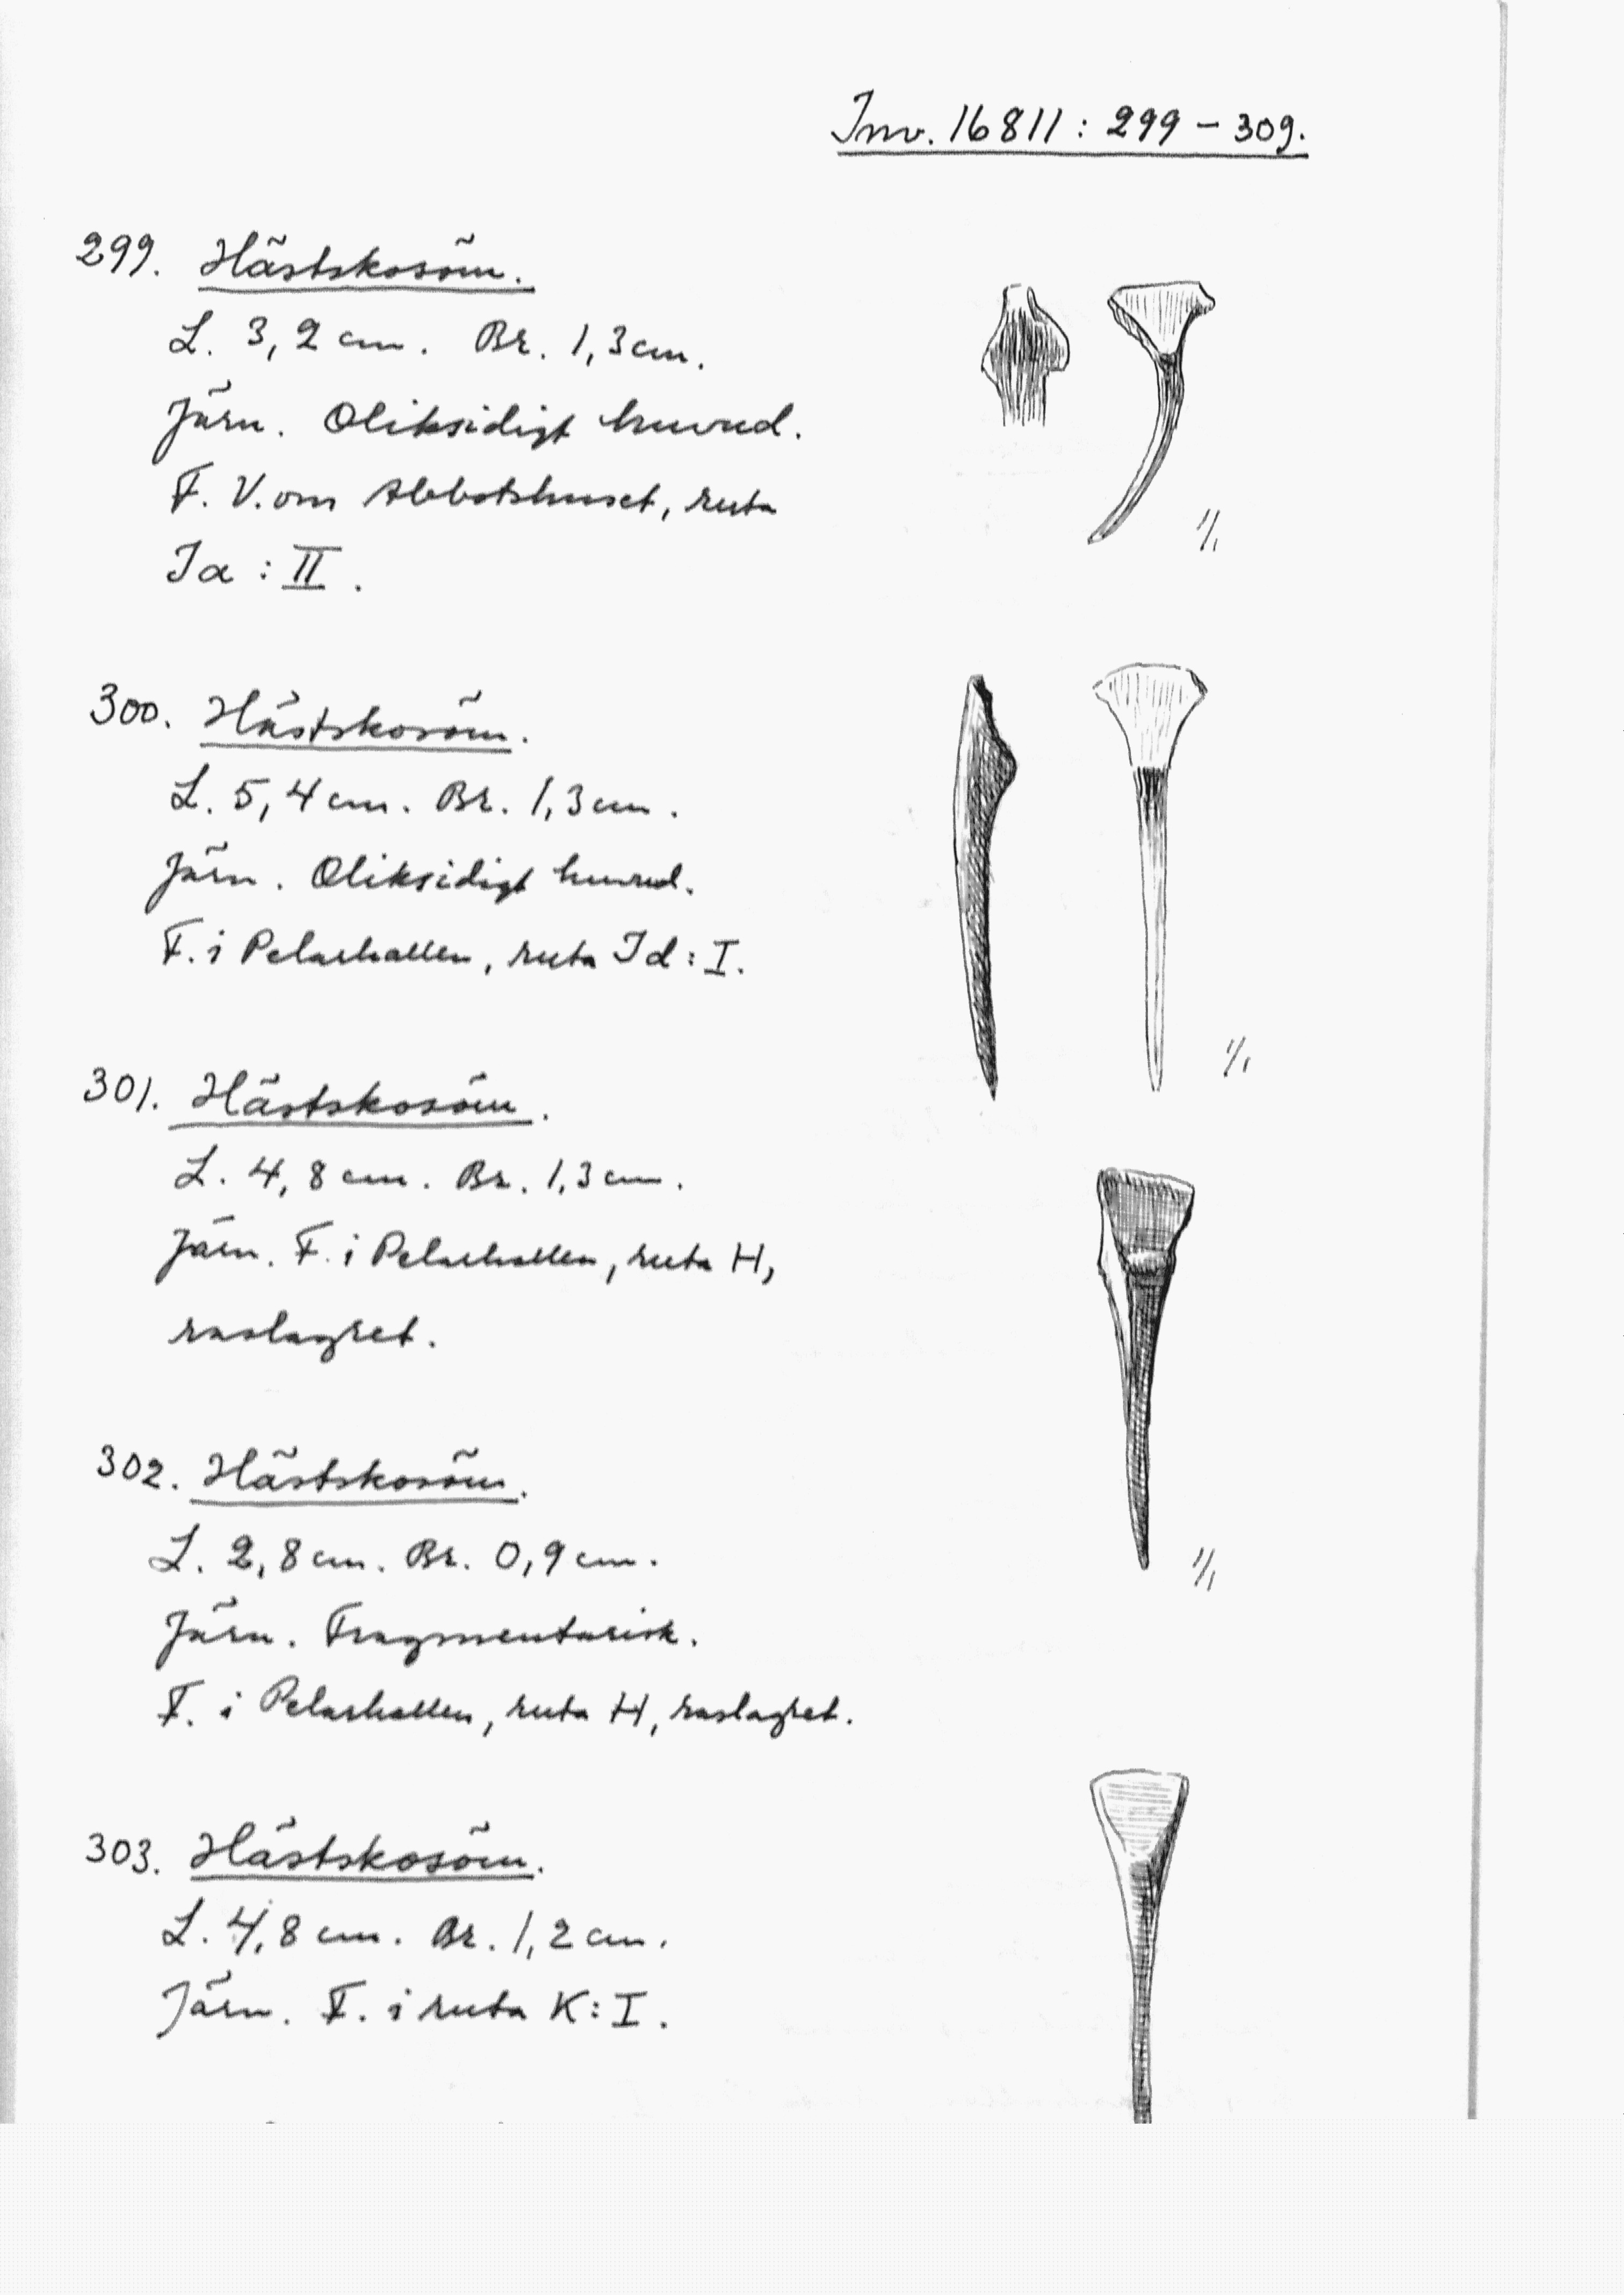 Inv. 16811: 299 – 309.
299. Hästskosöm.
L. 3,2 cm. Br. 1,3 cm.
Järn. Oliksidigt huvud.
F. V. om Abbotshuset, ruta
Ia : II.
1/1
300. Hästskosöm.
L. 5,4 cm. Br. 1,3 cm.
Järn. Oliksidigt huvud.
F. i Pelarhallen, ruta Id: I.
1/1
301. Hästskosöm.
L. 4,8 cm. Br. 1,3 cm.
Järn. F. i Pelarhallen, ruta H,
raslagret.
1/1
302. Hästskosöm.
L. 2,8 cm. Br. 0,9 cm.
Järn. Fragmentarisk.
F. i Pelarhallen, ruta H, raslagret.
303. Hästskosöm.
L. 4,8 cm. Br. 1,2 cm.
Järn. F. i ruta K: I.